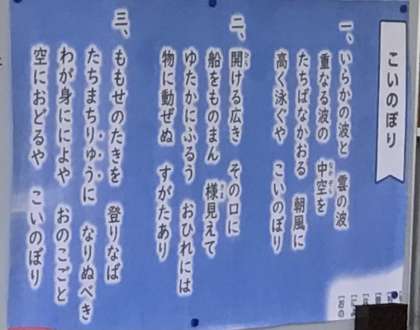 こいのぼり
一、いらかの波と 雲の波
重なる波の 中空を
たちばなかおる 朝風に
高く泳ぐや こいのぼり
二、開ける広き その口に
船をものまん 様見えて
ゆたかにふるう おひれには
物に動ぜぬ すがたあり
三、ももせのたきを 登りなば
たちまちりゅうに なりぬべき
わが身にによや おのこごと
空におどるや こいのぼり